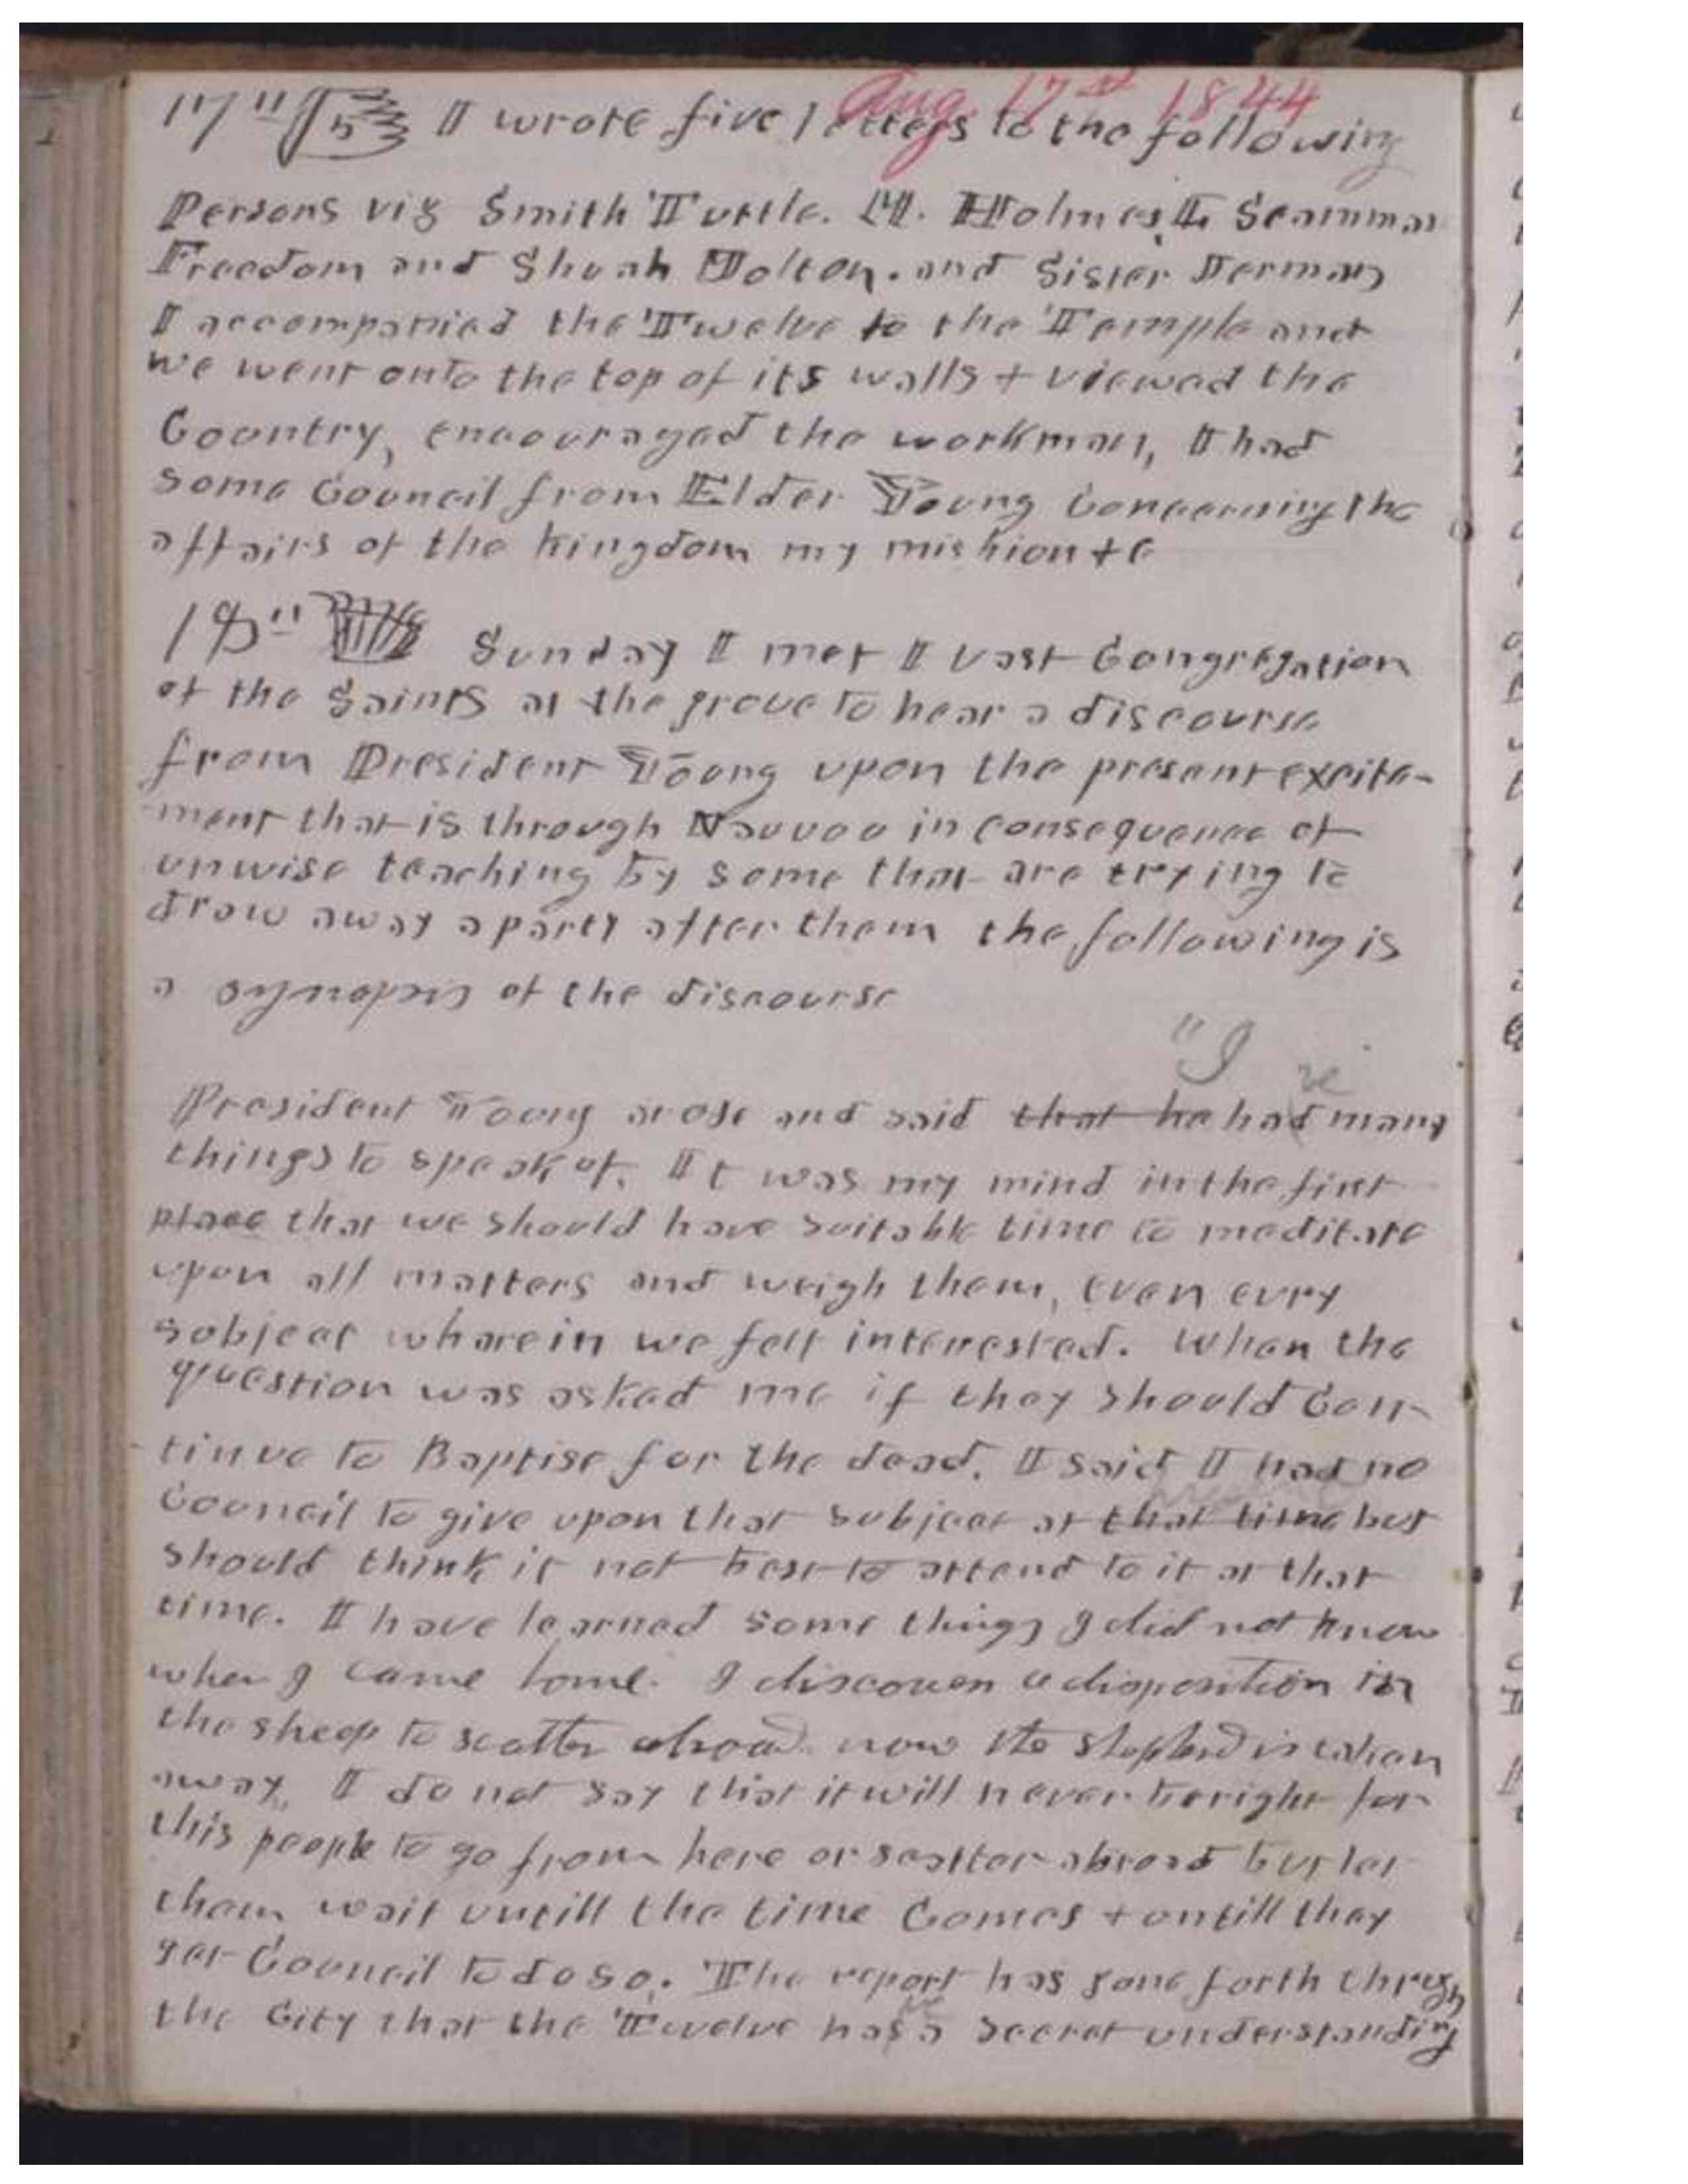 Aug. 17st 1844
17" 5 I wrote five letters to the following
Persons viz Smith Tuttle. M. Holmes, E Scammar
Freedom and Shuah Molton. and Sister
I accompanied the Twelve to the Temple and
we went onto the top of its walls + viewed the
Country, encouraged the workman, I had
some Council from Elder Young Concerning the
affairs of the kingdom my mishion +c
18" Sunday I met I vast Congregation
of the Saints at the grove to hear a discourse
from President Young upon the present excite-
ment that is through Nauvoo in consequence of
unwise teaching by some that are trying to
draw away a party after them the following is
a synopsis of the discourse
"I ve
President Young arose and said that he had many
things to speak of. It was my mind in the first
place that we should have suitable time to meditate
upon all matters and weigh them, even evry
subject wharein we felt interested. When the
question was asked me if they should Con-
tinue to Baptise for the dead. I said I had no
Council to give upon that subject at that time but
should think it not best to attend to it at that
time. I have learned some things I did not know
when I came home. I discover a disposition in
the sheep to scatter abroad now the shepherd is taken
away. I do not say that it will never be right for
this people to go from here or scatter abroad but let
them wait untill the time Comes + untill they
get Council to do so. The report has gone forth through
ve
the City that the Twelve has a secret understanding